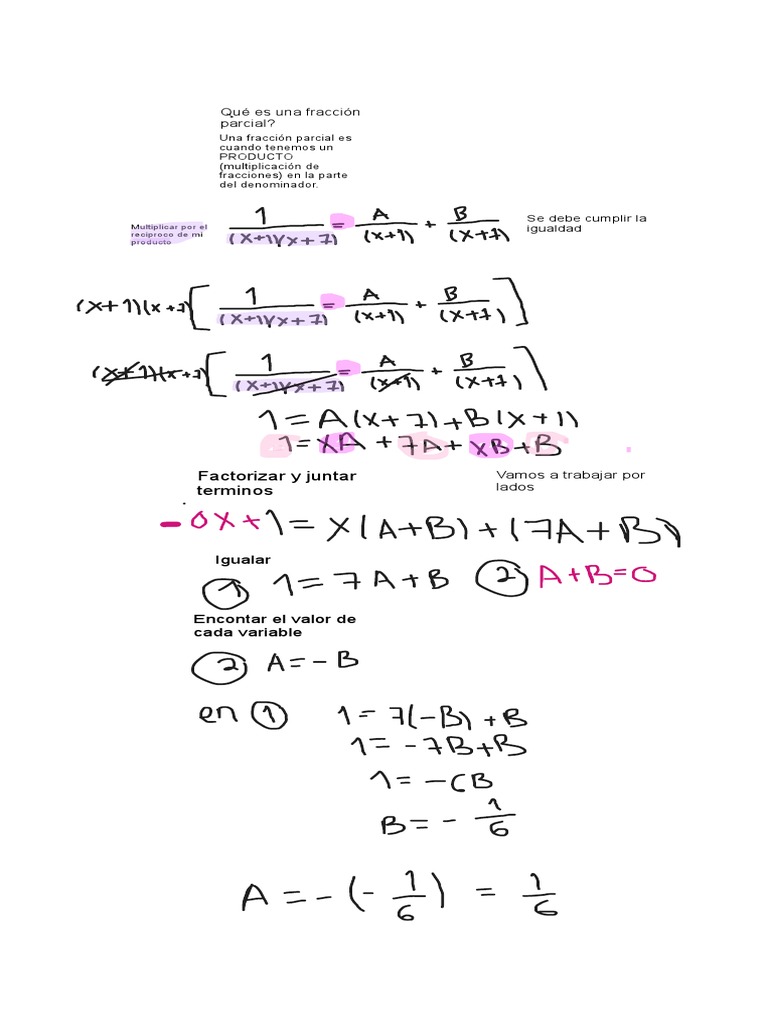 Qué es una fracción
parcial?
Una fracción parcial es
cuando tenemos un
PRODUCTO
(multiplicación de
fracciones) en la parte
del denominador.
Multiplicar por el
reciproco de mi
producto
1/((x+1)(x+7)) = A/(x+1) + B/(x+7)
Se debe cumplir la
igualdad
(x+1)(x+7)[1/((x+1)(x+7)) = A/(x+1) + B/(x+7)]
(x+1)(x+7)[1/((x+1)(x+7)) = A/(x+1) + B/(x+7)]
1=A(x+7)+B(x+1)
1=xA+7A+xB+B
Factorizar y juntar
terminos
Vamos a trabajar por
lados
-0x+1=x(A+B)+(7A+B)
Igualar
① 1=7A+B ② A+B=0
Encontar el valor de
cada variable
② A=-B
en ① 1=7(-B)+B
1=-7B+B
1=-6B
B=-1/6
A=-(-1/6)=1/6